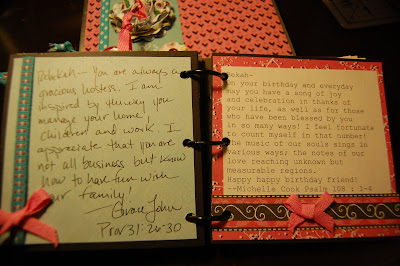 Rebekah— You are always a
gracious hostess. I am
inspired by the way you
manage your home,
children and work. I
appreciate that you are
not all business but know
how to have fun with
our family!
—Grace John
Prov 31:26-30
ekah-
on your birthday and everyday
may you have a song of joy
and celebration in thanks of
your life, as well as for those
who have been blessed by you
in so many ways! I feel fortunate
to count myself in that number
the music of our souls sings in
various ways; the notes of our
love reaching unknown but
measurable regions.
Happy happy birthday friend!
--Michelle Cook Psalm 108 : 1-4